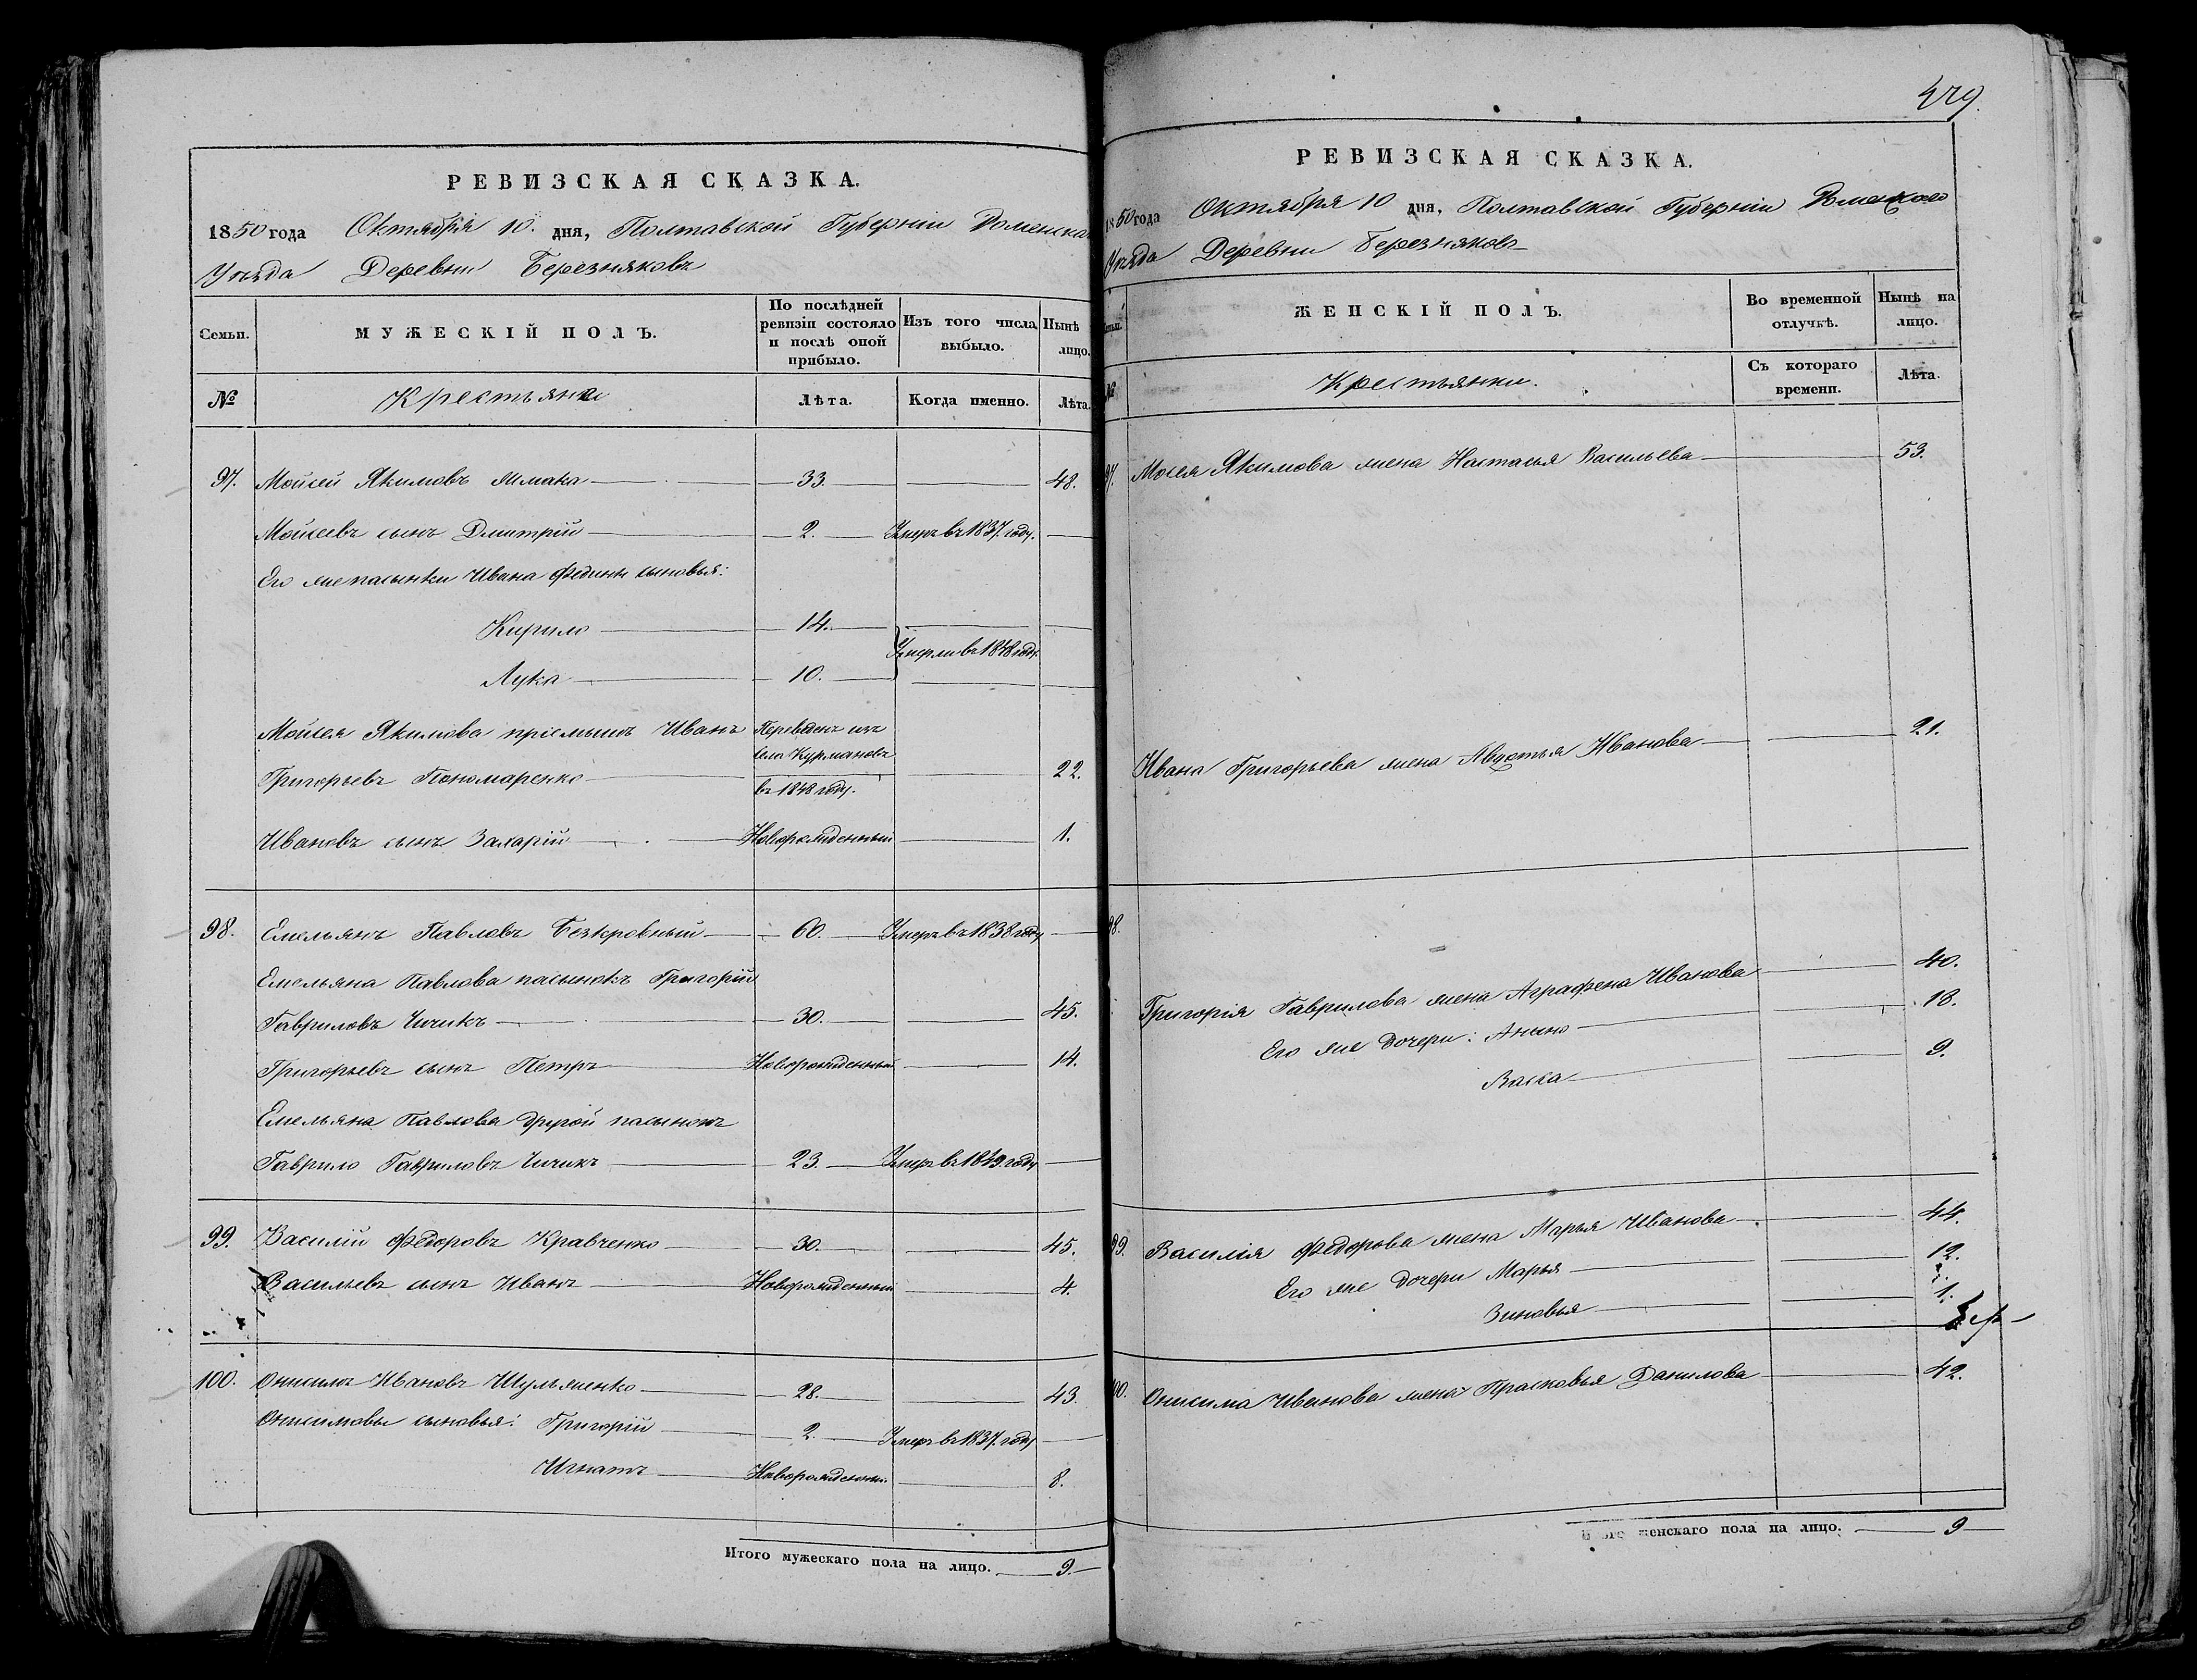 РЕВИЗСКАЯ СКАЗКА.
1850 года Октября 10. дня, Полтавской Губерніи Роменскаго
Уѣзда Деревни Березняковъ
Семьи.
МУЖЕСКІЙ ПОЛЪ.
По послѣдней ревизіи состояло и послѣ оной прибыло.
Изъ того числа выбыло.
Нынѣ лицо.
№
Крестьяне
Лѣта.
Когда именно.
Лѣта.
97. Мойсей Якимовъ 33. 48.
Мойсеевъ сынъ Дмитрій 2. Умеръ въ 1837. году.
Его же пасынки Ивана сыновья:
Кирило 14.
Умерли въ 1848 году.
Лука 10.
Мойсея Якимова пріемышъ Иванъ Переведенъ изъ
села Курмановъ
Григорьевъ Пономаренко 22.
въ 1848 году.
Ивановъ сынъ Захарій Новорожденный 1.
98. Емельянъ Павловъ Безкровный 60. Умеръ въ 1838 году
Емельяна Павлова пасынокъ Григорій
Гавриловъ Чичикъ 30. 45.
Григорьевъ сынъ Петръ Новорожденный 14.
Емельяна Павлова другой пасынокъ
Гаврило Гавриловъ Чичикъ 23. Умеръ въ 1849 году
99. Василій Федоровъ Кравченко 30. 45.
Васильевъ сынъ Иванъ Новорожденный 4.
100. Онисимъ Ивановъ Шульженко 28. 43.
Онисимовы сыновья: Григорій 2. Умеръ въ 1837. году
Игнатъ Новорожденны. 8.
Итого мужескаго пола на лицо. 9.
479.
РЕВИЗСКАЯ СКАЗКА.
1850 года Октября 10 дня, Полтавской Губерніи Роменскаго
Уѣзда Деревни Березняковъ
ЖЕНСКІЙ ПОЛЪ.
Во временной отлучкѣ.
Нынѣ на лицо.
№
Крестьянки.
Съ котораго времени.
Лѣта.
97. Мосея Якимова жена Настасья Васильева 53.
Ивана Григорьева жена Авдотья Иванова 21.
98.
Григорія Гаврилова жена Аграфена Иванова 40.
Его же дочери: Анна 18.
Васса 9.
99. Василія Федорова жена Марья Иванова 44.
Его же дочери Марья 12.
Зиновья 1.
100. Онисима Иванова жена Прасковья Данилова 42.
Итого женскаго пола на лицо. 9